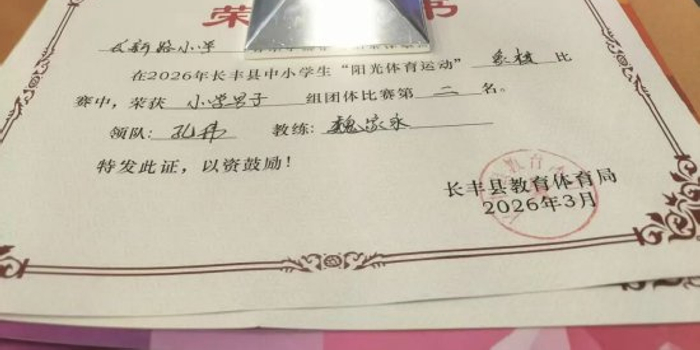 荣 书
长新路小学
在2026年长丰县中小学生“阳光体育运动”象棋比
赛中，荣获 小学男子 组团体比赛第 二 名。
领队: 孔伟 教练: 魏家永
特发此证，以资鼓励！
长丰县教育体育局
2026年3月